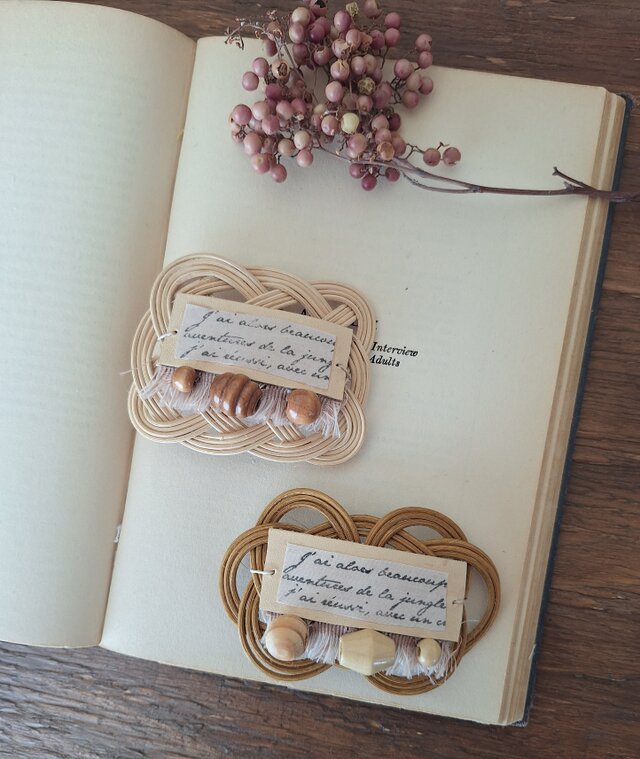 J'ai alors beaucou
aventures de la jung
j'ai réussi, avec un
Interview
Adults
J'ai alors beaucoup
aventures de la jungle
j'ai réussi, avec un c